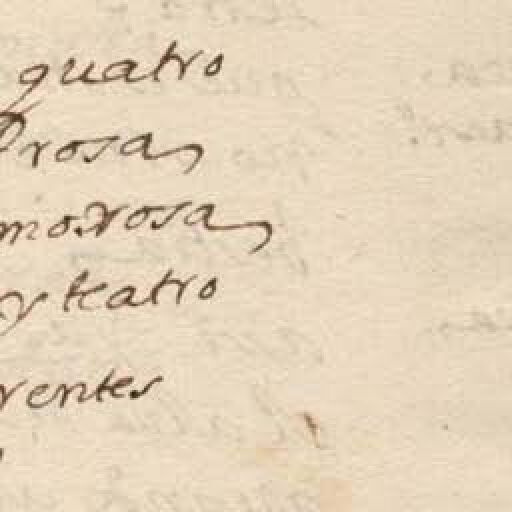 quatro
Prosa
morosa
y teatro
rentes